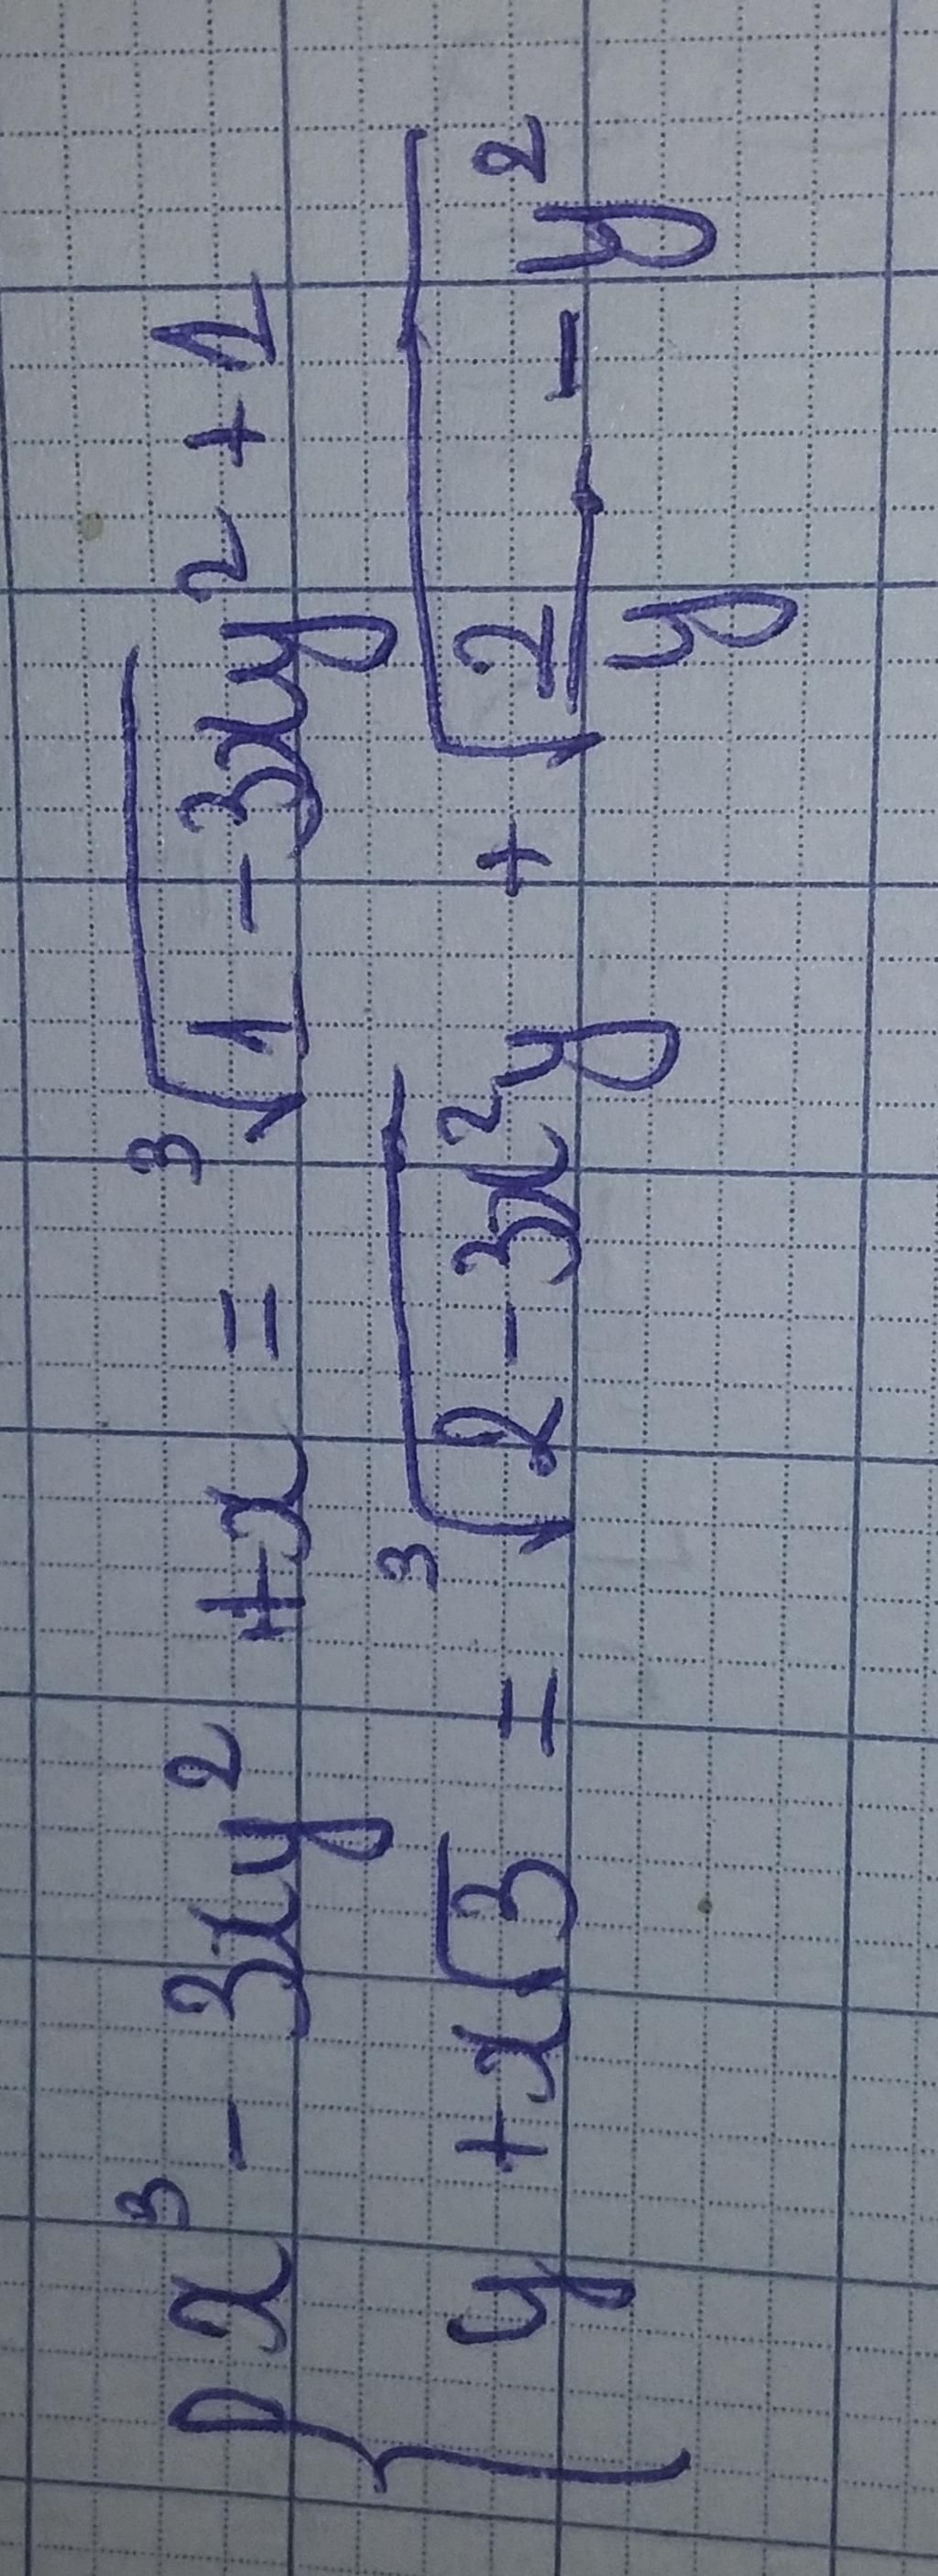 x³ - 3xy² + x = ∛(1 - 3xy²) + 1
y + x√3 = ∛(2 - 3x²y) + √(2/y - y²)